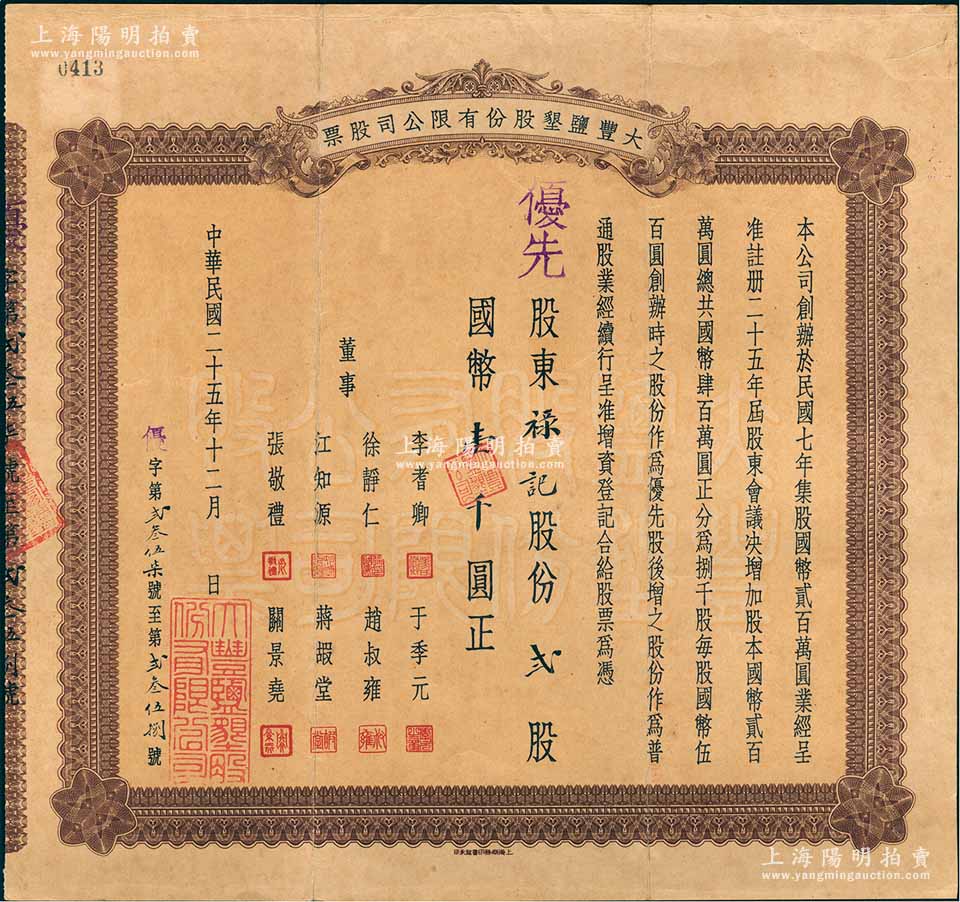 上海陽明拍賣
www.yangmingauction.com
0413
大豐鹽墾股份有限公司股票
本公司創辦於民國七年集股國幣貳百萬圓業經呈
准註册二十五年屆股東會議决增加股本國幣貳百
萬圓總共國幣肆百萬圓正分爲捌千股每股國幣伍
百圓創辦時之股份作爲優先股後增之股份作爲普
通股業經續行呈准增資登記合給股票爲憑
優先
股東祿記股份弍股
國幣壹千圓正
董事
李耆卿 于季元
徐靜仁 趙叔雍
江知源 蔣嘏堂
張敬禮 關景堯
中華民國二十五年十二月 日
優字第弍叁伍柒號至第弍叁伍捌號
大豐鹽墾股份有限公司
上海陽明拍賣
www.yangmingauction.com